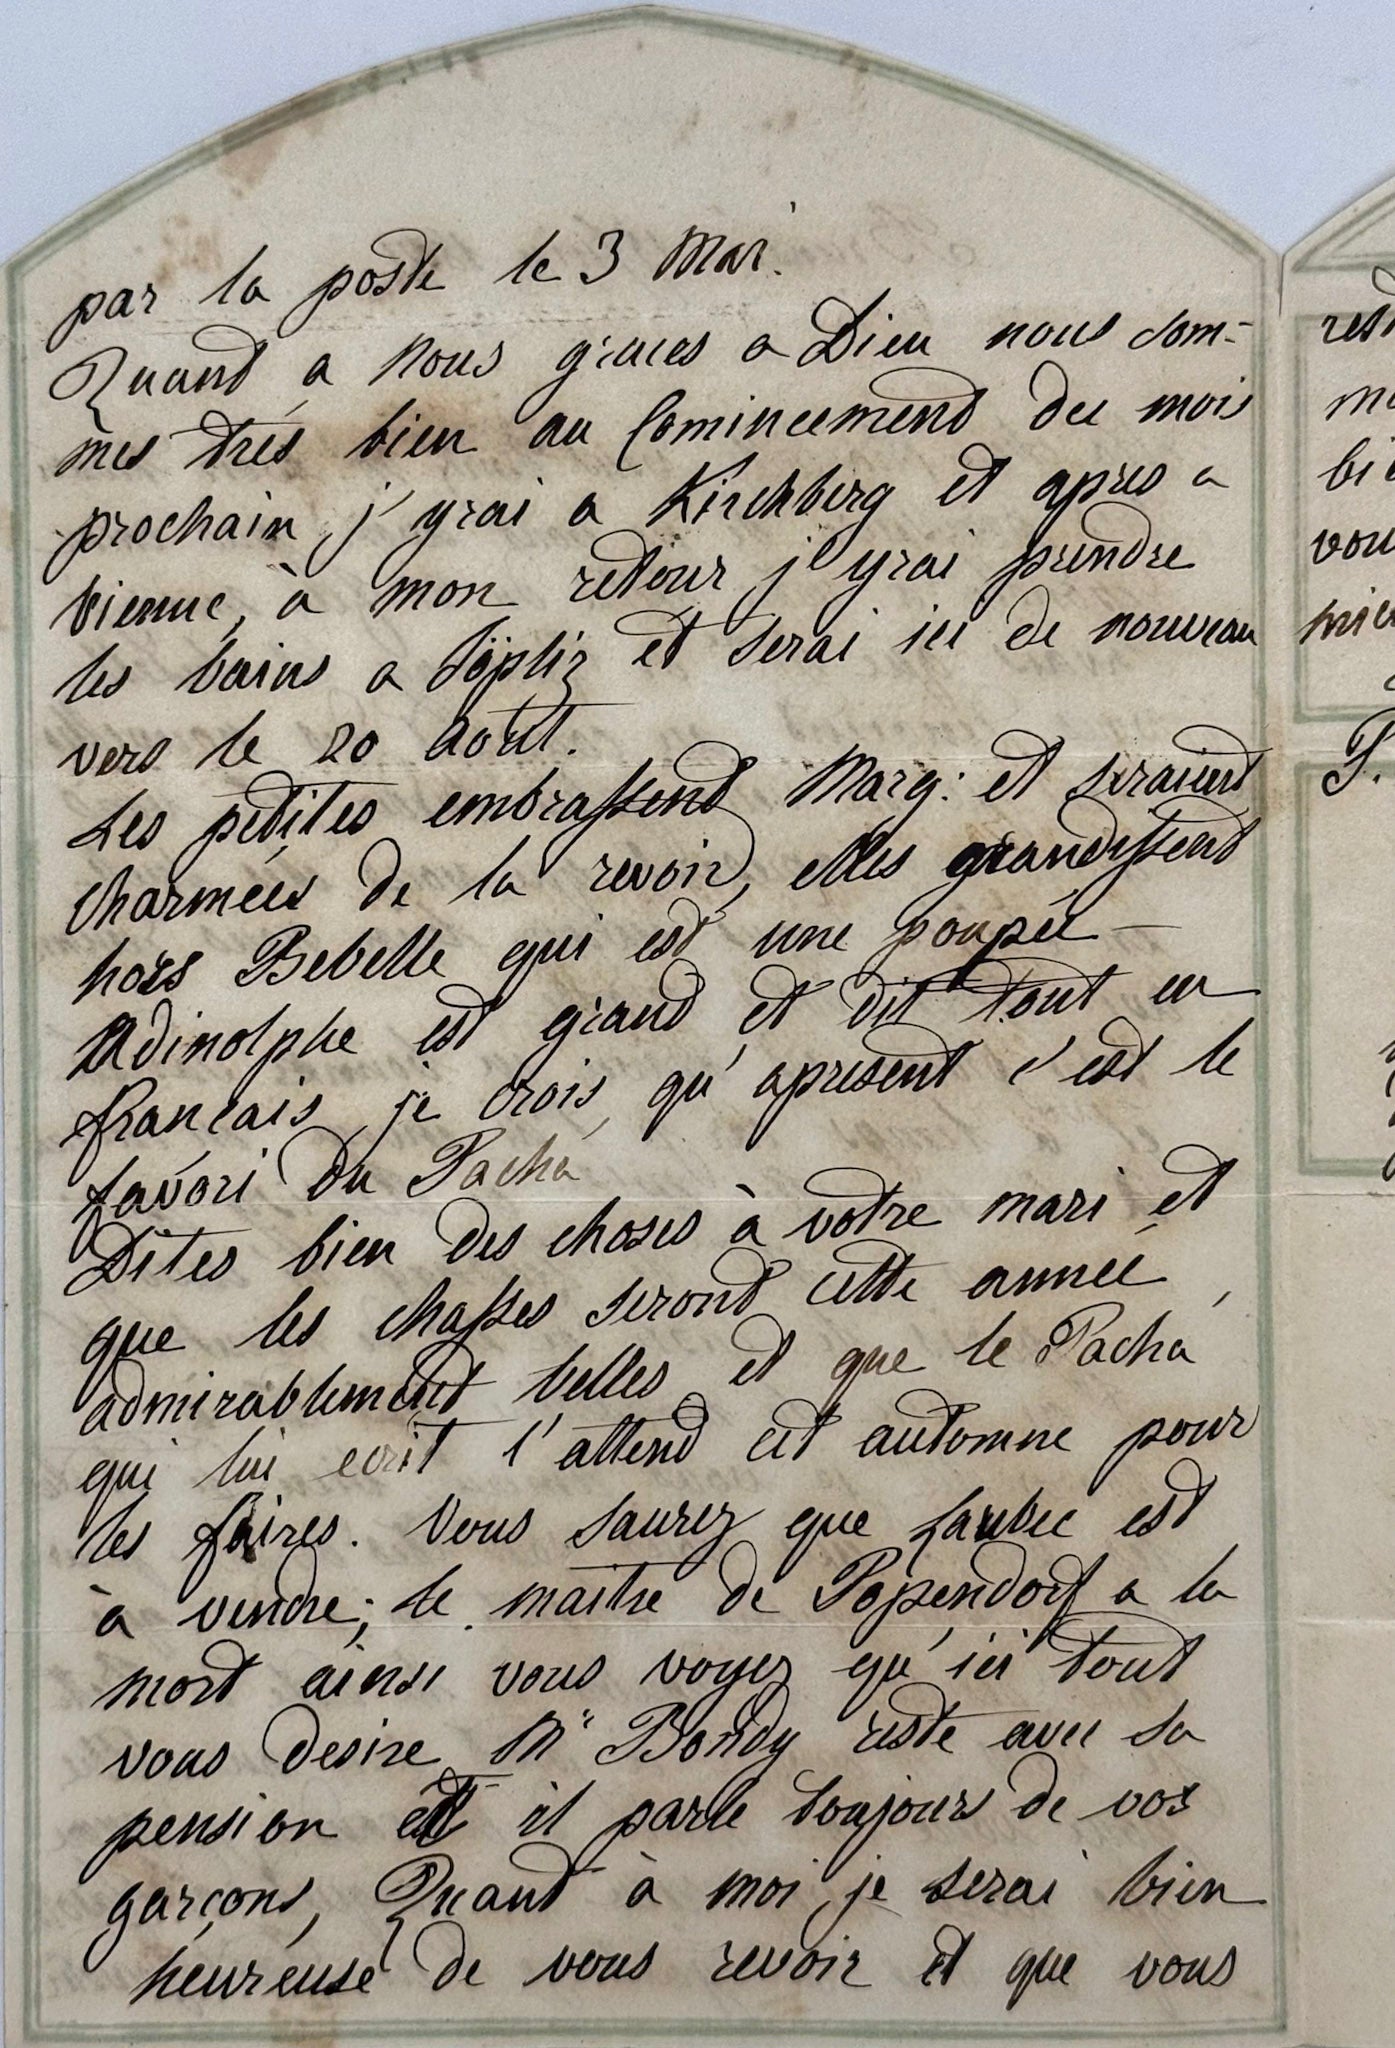 par la poste le 3 Mai.
Quand a nous graces a Dieu nous som-
mes très bien au Comincement du mois
prochain j'yrai a Kirchberg et apres a
vienne, à mon retour j'yrai prendre
les bains a Töpliz et serai ici de nouveau
vers le 20 Août.
Les petites embrassent Marg: et seraient
charmées de la revoir, elles grandissent
hors Bebelle qui est une poupée —
Adinolphe est grand et dit tout en
francais, je crois, qu'apresent c'est le
favori du Pacha
Dites bien des choses à votre mari et
que les chasses seront cette année,
admirablement belles et que le Pacha
qui lui ecrit l'attend cet automne pour
les faires. Vous saurez que est
à vendre; le maître de Popendorf a la
mort ainsi vous voyez qu'ici tout
vous desire Mr Bondy reste avec sa
pension et il parle toujours de vos
garçons, Quand à moi, je serai bien
heureuse de vous revoir et que vous
P.